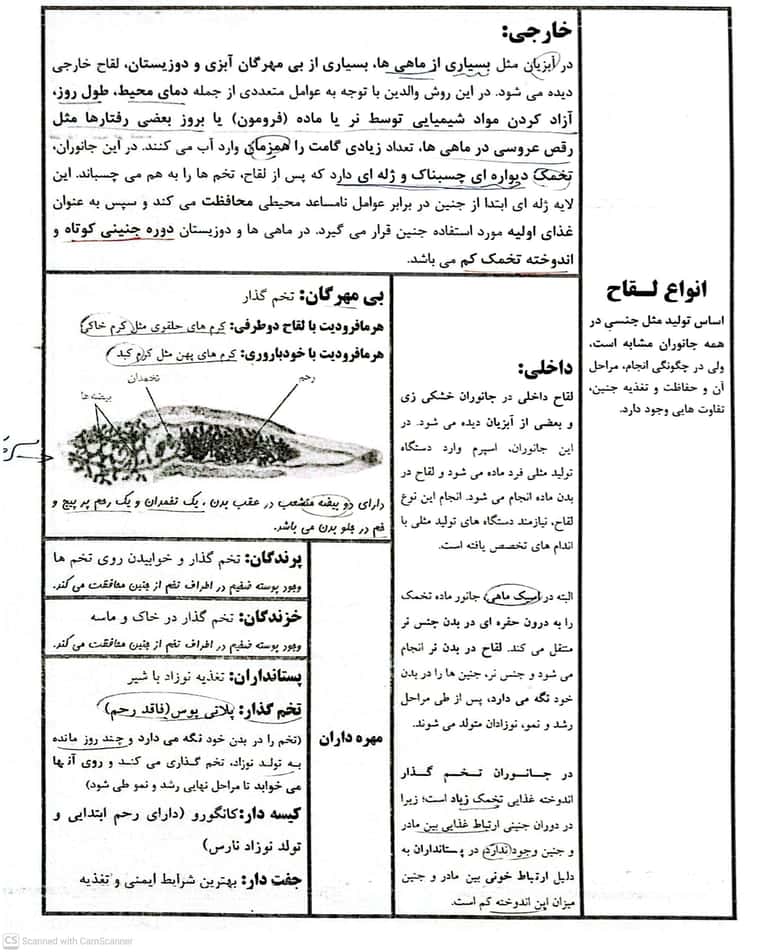 انواع لـقاح
اساس تولید مثل جنسی در
همه جانوران مشابه است،
ولی در چگونگی انجام، مراحل
آن و حفاظت و تغذیه جنین،
تفاوت هایی وجود دارد.
خارجی:
در آبزیان مثل بسیاری از ماهی ها، بسیاری از بی مهرگان آبزی و دوزیستان، لقاح خارجی
دیده می شود. در این روش والدین با توجه به عوامل متعددی از جمله دمای محیط، طول روز،
آزاد کردن مواد شیمیایی توسط نر یا ماده (فرومون) یا بروز بعضی رفتارها مثل
رقص عروسی در ماهی ها، تعداد زیادی گامت را همزمان وارد آب می کنند. در این جانوران،
تخمک دیواره ای چسبناک و ژله ای دارد که پس از لقاح، تخم ها را به هم می چسباند. این
لایه ژله ای ابتدا از جنین در برابر عوامل نامساعد محیطی محافظت می کند و سپس به عنوان
غذای اولیه مورد استفاده جنین قرار می گیرد. در ماهی ها و دوزیستان دوره جنینی کوتاه و
اندوخته تخمک کم می باشد.
داخلی:
لقاح داخلی در جانوران خشکی زی
و بعضی از آبزیان دیده می شود. در
این جانوران، اسپرم وارد دستگاه
تولید مثلی فرد ماده می شود و لقاح در
بدن ماده انجام می شود. انجام این نوع
لقاح، نیازمند دستگاه های تولید مثلی با
اندام های تخصص یافته است.
البته در اسبک ماهی، جانور ماده تخمک
را به درون حفره ای در بدن جنس نر
منتقل می کند. لقاح در بدن نر انجام
می شود و جنس نر، جنین ها را در بدن
خود نگه می دارد، پس از طی مراحل
رشد و نمو، نوزادان متولد می شوند.
در جـانـوران تـخـم گـذار
اندوخته غذایی تخمک زیاد است؛ زیرا
در دوران جنینی ارتباط غذایی بین مادر
و جنین وجود ندارد در پستانداران به
دلیل ارتباط خونی بین مادر و جنین
میزان این اندوخته کم است.
بی مهرگان: تخم گذار
هرمافرودیت با لقاح دوطرفی: کرم های حلقوی مثل کرم خاکی
هرمافرودیت با خودباروری: کرم های پهن مثل کرم کبد
رحم
تخمدان
بیضه ها
دارای دو بیضه منشعب در عقب بدن ، یک تخمدان و یک رحم پر پیچ و
خم در جلو بدن می باشد.
مهره داران
پرندگان: تخم گذار و خوابیدن روی تخم ها
وجود پوسته ضخیم در اطراف تخم از جنین محافظت می کند.
خزندگان: تخم گذار در خاک و ماسه
وجود پوسته ضخیم در اطراف تخم از جنین محافظت می کند.
پستانداران: تغذیه نوزاد با شیر
تخم گذار: پلاتی پوس(فاقد رحم)
(تخم را در بدن خود نگه می دارد و چند روز مانده
به تولد نوزاد، تخم گذاری می کند و روی آنها
می خوابد تا مراحل نهایی رشد و نمو طی شود)
کیسه دار:کانگورو (دارای رحم ابتدایی و
تولد نوزاد نارس)
جفت دار: بهترین شرایط ایمنی و تغذیه
CS Scanned with CamScanner